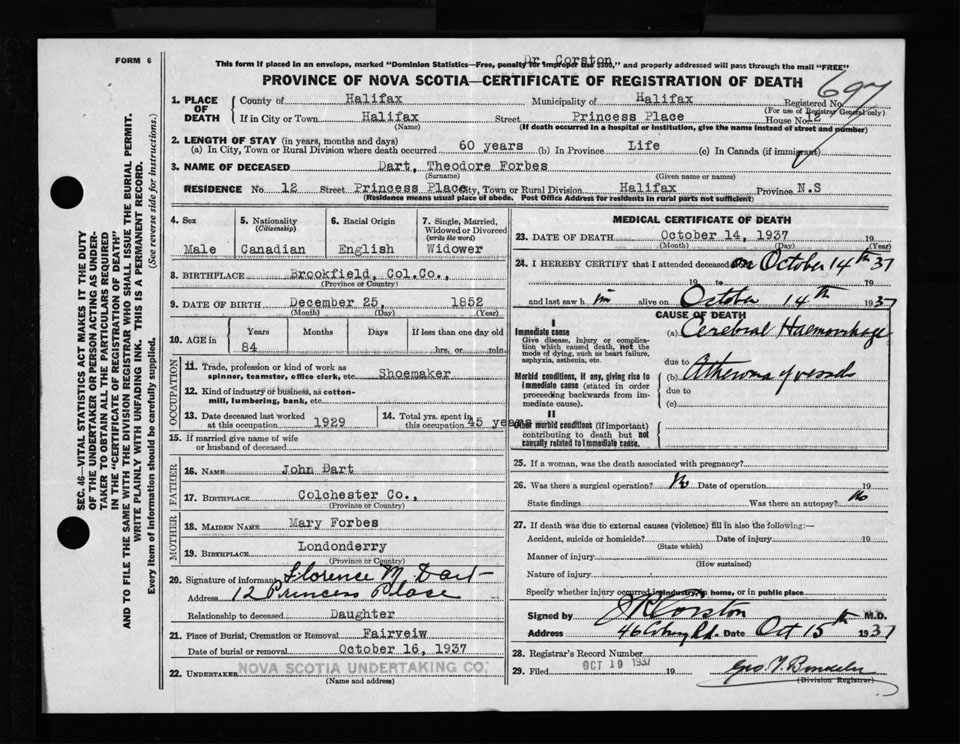 FORM 6
Dr. Corston
This form if placed in an envelope, marked "Dominion Statistics—Free, penalty for improper use $300," and properly addressed will pass through the mail "FREE"
PROVINCE OF NOVA SCOTIA—CERTIFICATE OF REGISTRATION OF DEATH
697
1. PLACE OF DEATH
County of Halifax Municipality of Halifax Registered No.
(For use of Registrar General only)
If in City or Town Halifax Street Princess Place House No. 12
(Name) (If death occurred in a hospital or institution, give the name instead of street and number)
2. LENGTH OF STAY (in years, months and days)
(a) In City, Town or Rural Division where death occurred 60 years (b) In Province Life (c) In Canada (if immigrant)
3. NAME OF DECEASED Dart, Theodore Forbes
(Surname) (Given name or names)
RESIDENCE No. 12 Street Princess Place City, Town or Rural Division Halifax Province N.S
(Residence means usual place of abode. Post Office Address for residents in rural parts not sufficient)
4. Sex 5. Nationality (Citizenship) 6. Racial Origin 7. Single, Married, Widowed or Divorced (write the word)
Male Canadian English Widower
8. BIRTHPLACE Brookfield, Col.Co.,
(Province or Country)
9. DATE OF BIRTH December 25, 1852
(Month) (Day) (Year)
10. AGE in Years Months Days If less than one day old
84 hrs. or min.
OCCUPATION
11. Trade, profession or kind of work as spinner, teamster, office clerk, etc. Shoemaker
12. Kind of industry or business, as cotton-mill, lumbering, bank, etc.
13. Date deceased last worked at this occupation 1929
14. Total yrs. spent in this occupation 45 years
15. If married give name of wife or husband of deceased
FATHER
16. NAME John Dart
17. BIRTHPLACE Colchester Co.,
(Province or Country)
MOTHER
18. MAIDEN NAME Mary Forbes
19. BIRTHPLACE Londonderry
(Province or Country)
20. Signature of informant Florence M. Dart
Address 12 Princess Place
Relationship to deceased Daughter
21. Place of Burial, Cremation or Removal Fairveiw
Date of burial or removal October 16, 1937
22. UNDERTAKER NOVA SCOTIA UNDERTAKING CO.
(Name and address)
MEDICAL CERTIFICATE OF DEATH
23. DATE OF DEATH October 14, 1937 19
(Month) (Day) (Year)
24. I HEREBY CERTIFY that I attended deceased on October 14th 37
19 to 19
and last saw him alive on October 14th 1937
CAUSE OF DEATH
I
Immediate cause (a) Cerebral Haemorrhage
Give disease, injury or complication which caused death, not the mode of dying, such as heart failure, asphyxia, asthenia, etc.
due to
Morbid conditions, if any, giving rise to immediate cause (stated in order proceeding backwards from immediate cause). (b) Atheroma of vessels
due to
(c)
II
Other morbid conditions (if important) contributing to death but not causally related to immediate cause.
25. If a woman, was the death associated with pregnancy?
26. Was there a surgical operation? No Date of operation 19
State findings Was there an autopsy? No
27. If death was due to external causes (violence) fill in also the following:—
Accident, suicide or homicide? Date of injury 19
(State which)
Manner of injury
(How sustained)
Nature of injury
Specify whether injury occurred in industry, in home, or in public place
Signed by Corston M.D.
Address 46 Coburg Rd. Date Oct 15th 1937
28. Registrar's Record Number
29. Filed OCT 19 1937 19
(Division Registrar)
SEC. 46—VITAL STATISTICS ACT MAKES IT THE DUTY
OF THE UNDERTAKER OR PERSON ACTING AS UNDER-
TAKER TO OBTAIN ALL THE PARTICULARS REQUIRED
IN THE "CERTIFICATE OF REGISTRATION OF DEATH"
AND TO FILE THE SAME WITH THE DIVISION REGISTRAR WHO SHALL ISSUE THE BURIAL PERMIT.
WRITE PLAINLY WITH UNFADING INK. THIS IS A PERMANENT RECORD.
Every item of information should be carefully supplied. (See reverse side for instructions.)